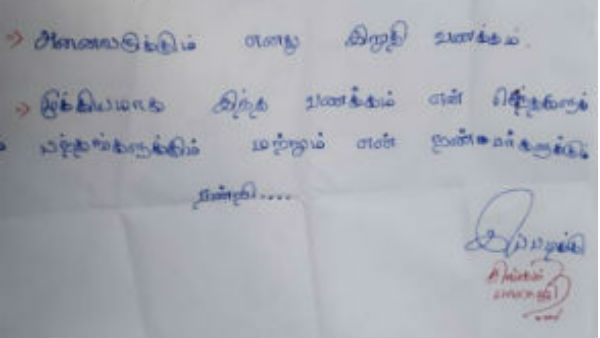 → அனைவருக்கும் எனது இறுதி வணக்கம்.
→ முக்கியமாக இந்த வணக்கம் என் சொந்தங்களுக்
பந்தங்களுக்கும் மற்றும் என் நண்பர்களுக்கும்
நன்றி....
இப்படிக்கு